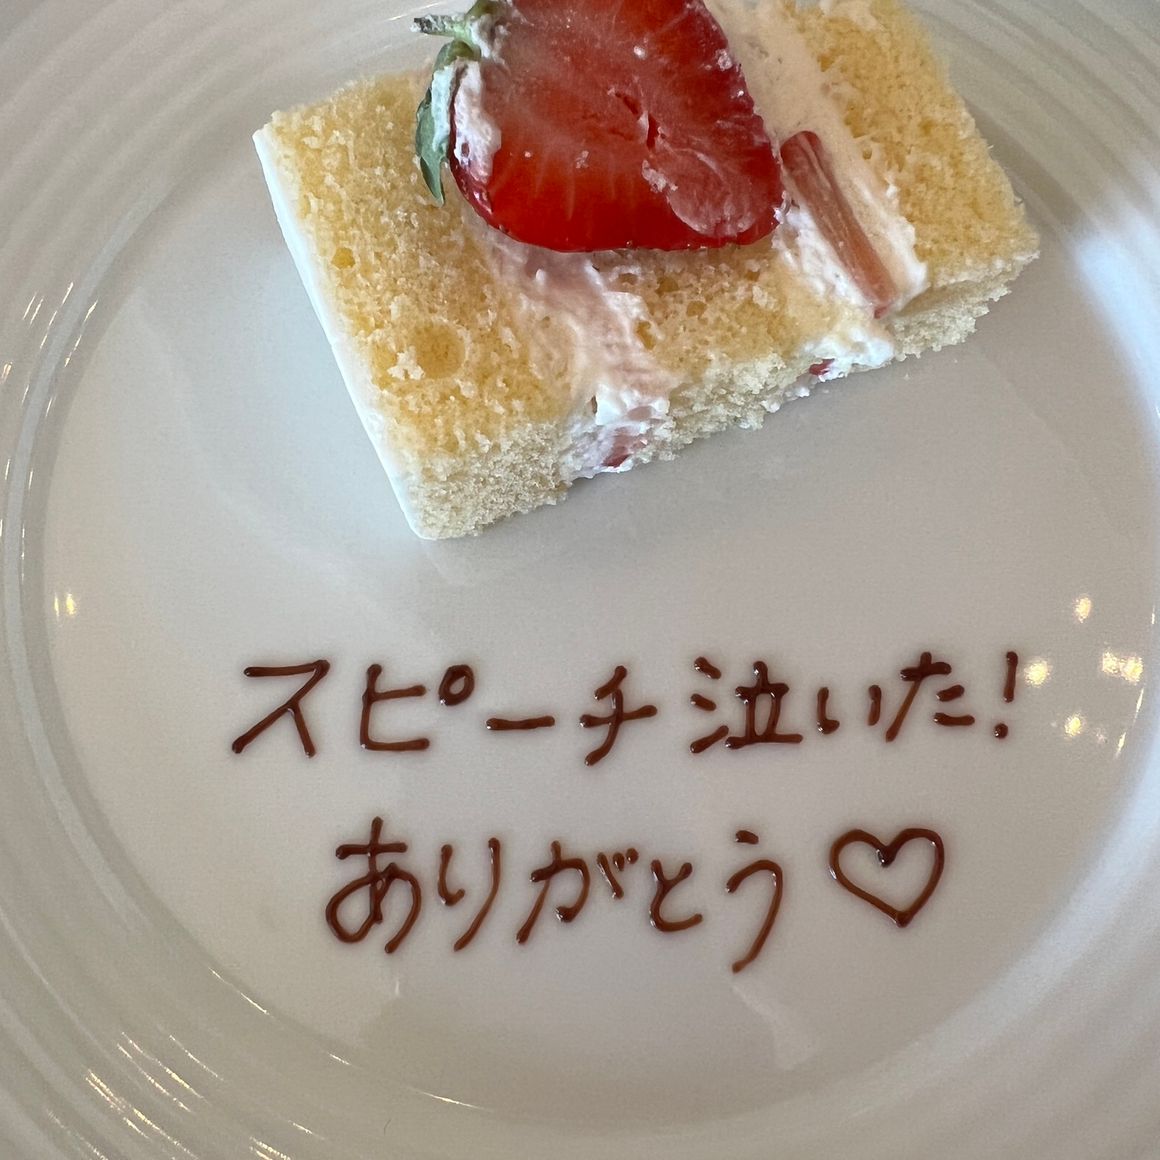 スピーチ泣いた!
ありがとう♡